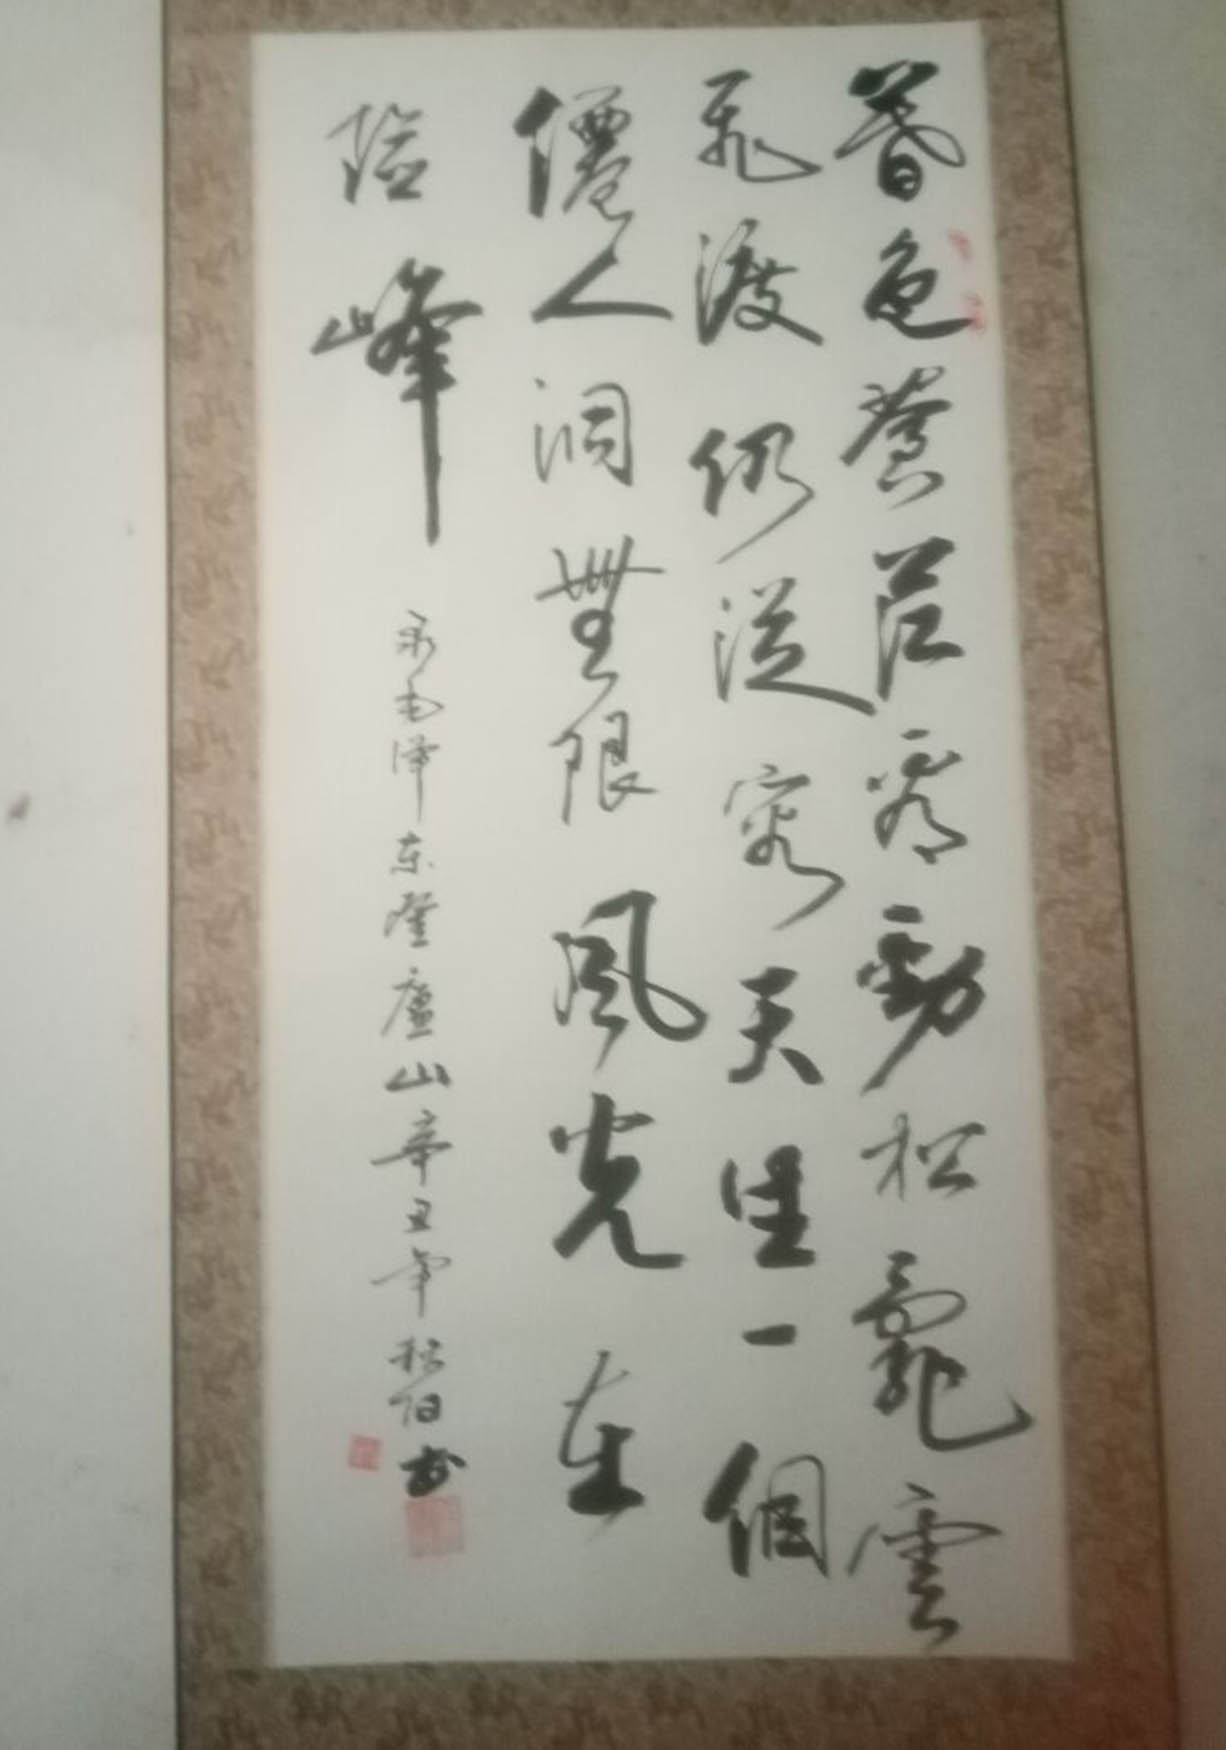 暮色蒼茫看勁松亂雲
飛渡仍從容天生一個
僊人洞無限風光在
險峰
录毛泽东登廬山辛丑年书